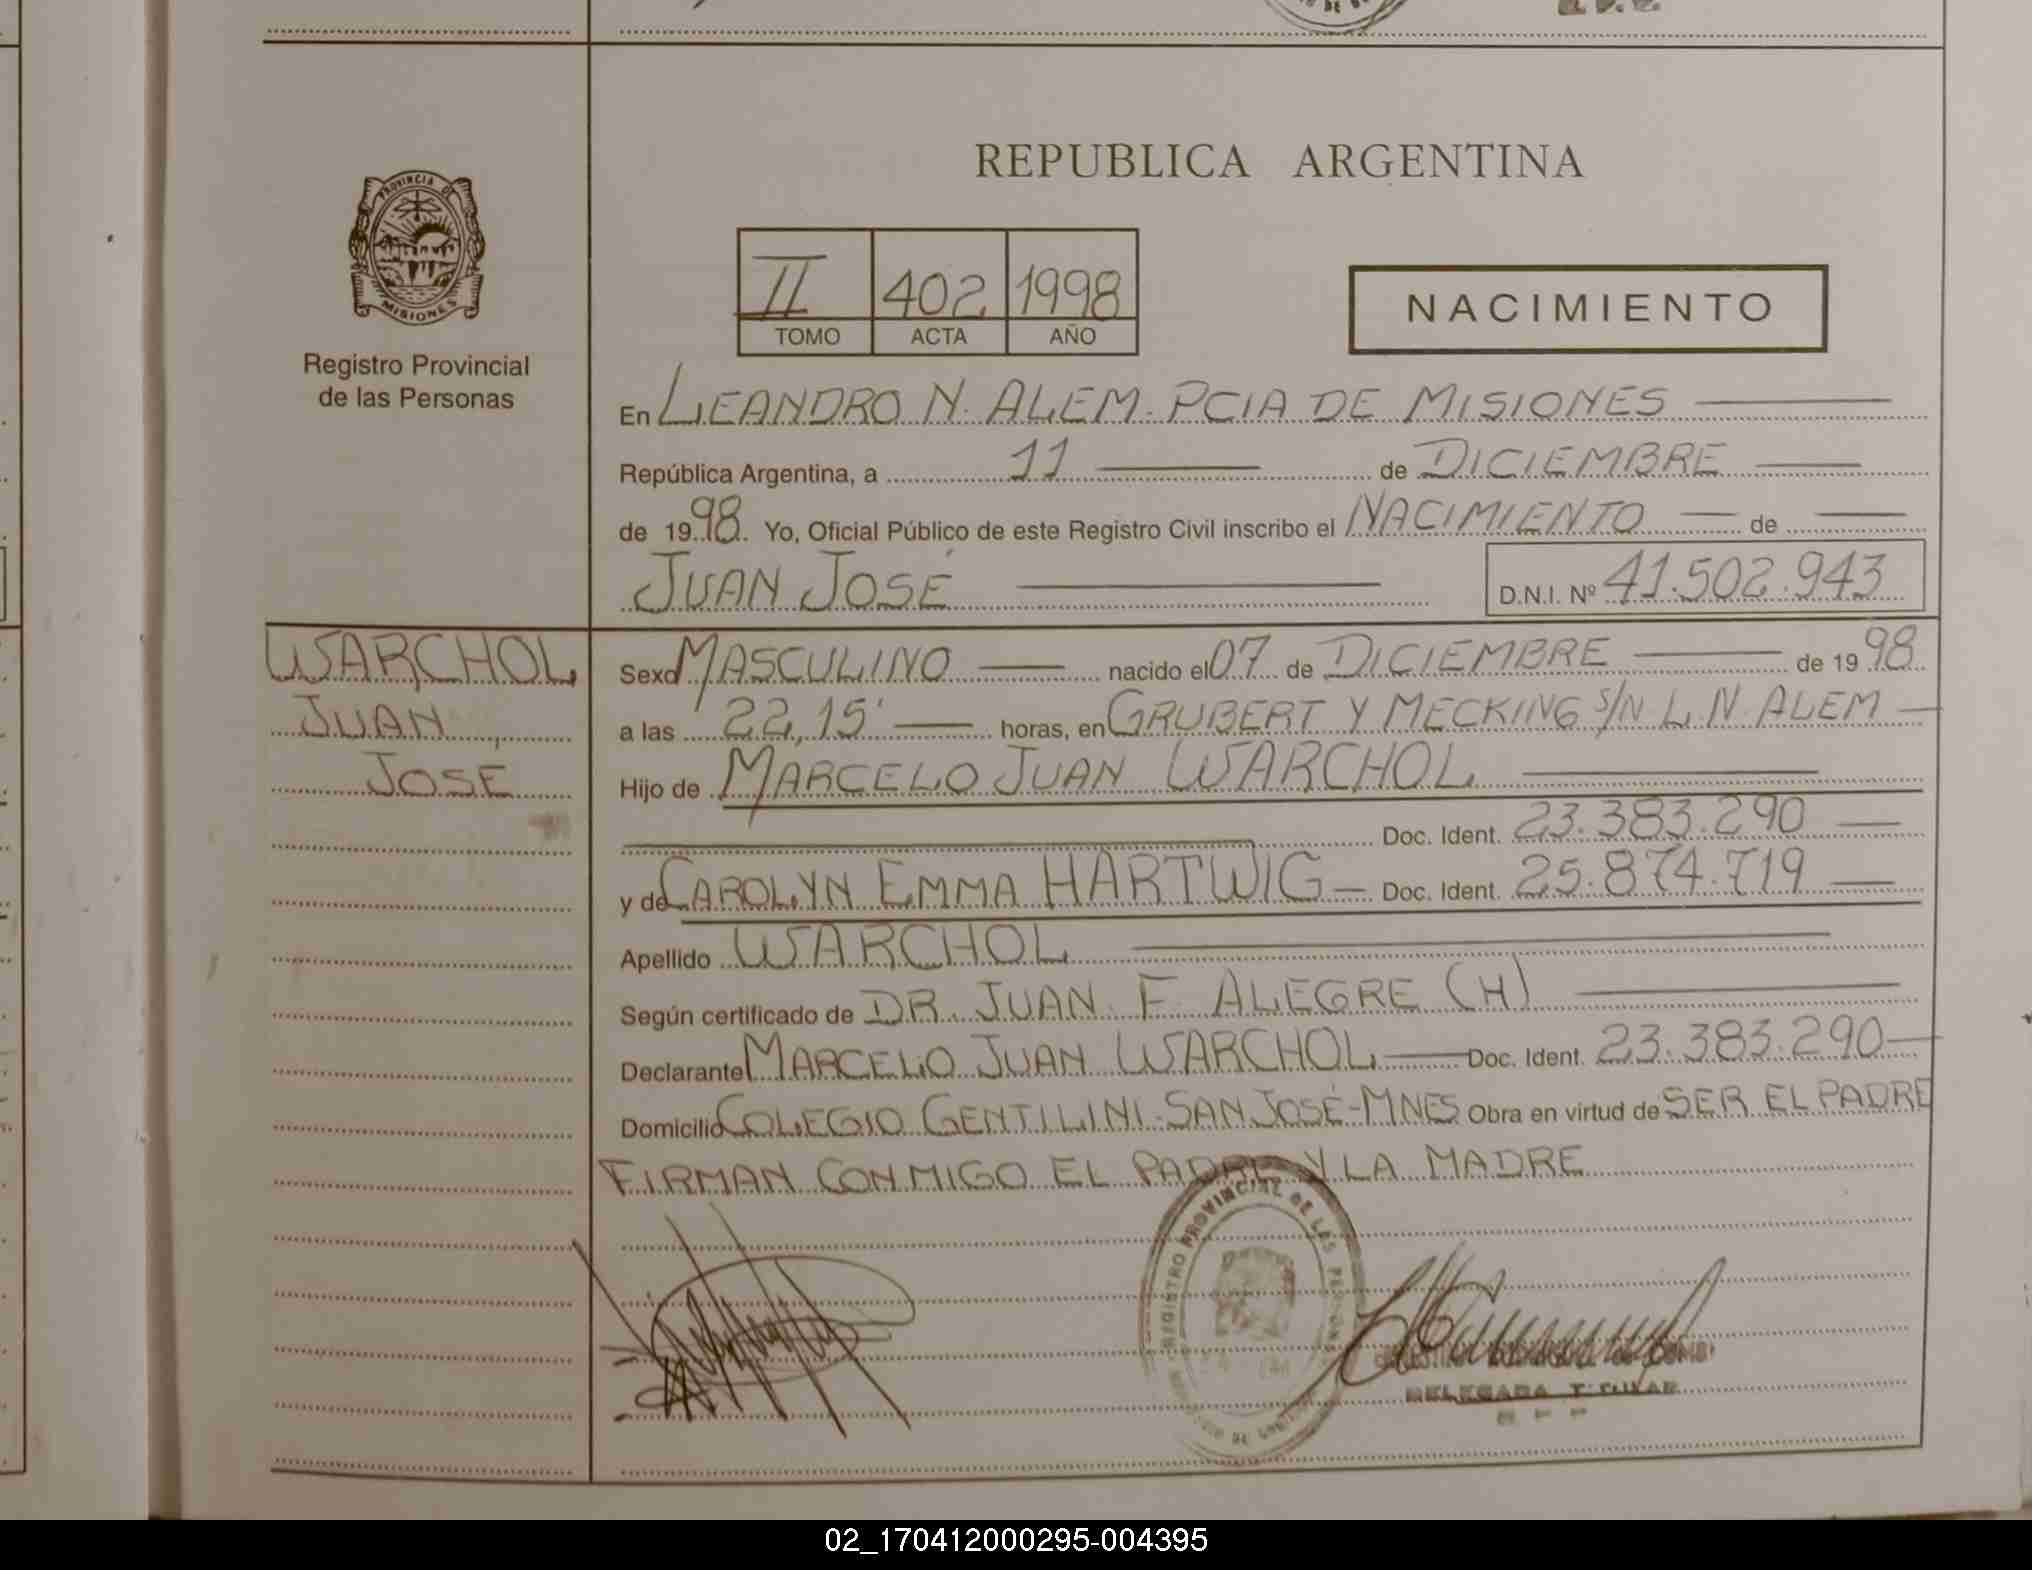 REPUBLICA ARGENTINA
PROVINCIA DE
MISIONES
Registro Provincial
de las Personas
II 402 1998
TOMO ACTA AÑO
NACIMIENTO
En LEANDRO N. ALEM. PCIA DE MISIONES
República Argentina, a 11 de DICIEMBRE
de 1998. Yo, Oficial Público de este Registro Civil inscribo el NACIMIENTO de
JUAN JOSÉ
D.N.I. Nº 41.502.943
WARCHOL
JUAN
JOSÉ
Sexo MASCULINO nacido el 07 de DICIEMBRE de 1998
a las 22,15' horas, en GRUBERT Y MECKING S/N L.N. ALEM
Hijo de MARCELO JUAN WARCHOL
Doc. Ident. 23.383.290
y de CAROLYN EMMA HARTWIG Doc. Ident. 25.874.719
Apellido WARCHOL
Según certificado de DR. JUAN F. ALEGRE (H)
Declarante MARCELO JUAN WARCHOL Doc. Ident. 23.383.290
Domicilio COLEGIO GENTILINI-SAN JOSÉ-MNES Obra en virtud de SER EL PADRE
FIRMAN CONMIGO EL PADRE Y LA MADRE
REGISTRO PROVINCIAL DE LAS PERSONAS
DELEGADA TITULAR
02_170412000295-004395